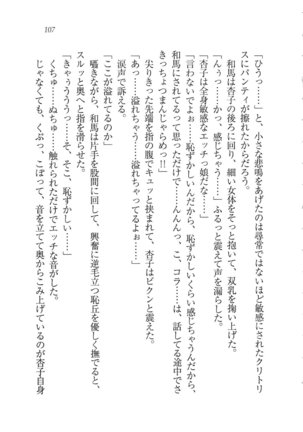 107
「ひうっ……」と、小さな悲鳴をあげたのは尋常ではないほど敏感にされたクリトリ
スにパンティが擦れたからだろう。
和馬は杏子の後ろに回り、細い女体をそっと抱いて、双乳を掬い上げた。
「んぅっ……か、感じちゃう……」ふるっと震えて声を漏らした。
「杏子は全身敏感なエッチっ娘だな……」
「言わないでよぉ……恥ずかしいんだから、恥ずかしいくらい感じちゃうんだから、
和馬にされてるって思っただけで……んんんっっ、こ、コラ……は、話してる途中でさ
きっちょつまんじゃらめっ!!」
尖りきった先端を指の腹でキュッと挟まれて、杏子はビクンと震えた。
「あっ……溢れちゃう……溢れちゃってるよぉ……」
涙声で訴える。
「ここが溢れてるのか」
囁きながら、和馬は片手を股間に回して、興奮に逆毛立つ恥丘を優しく撫でると、
スルッと奥へと指を滑らせた。
「きゃううううっ……そ、そこ、恥ずかしい……」
くちゅ……ぬちゅ……触れられただけでエッチな音がした。
じゃなくても、くぷっ、こぽって、音を立てて奥からこみ上げているのが杏子自身